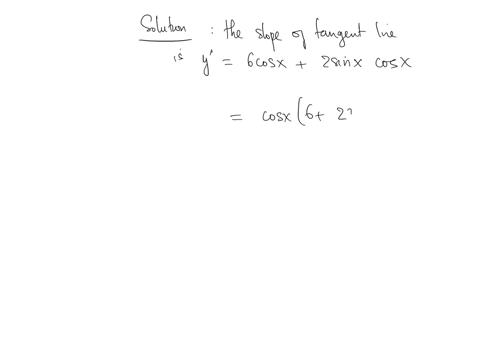 Solution : the slope of tangent line
is y' = 6cosx + 2sinx cosx
= cosx (6+ 2